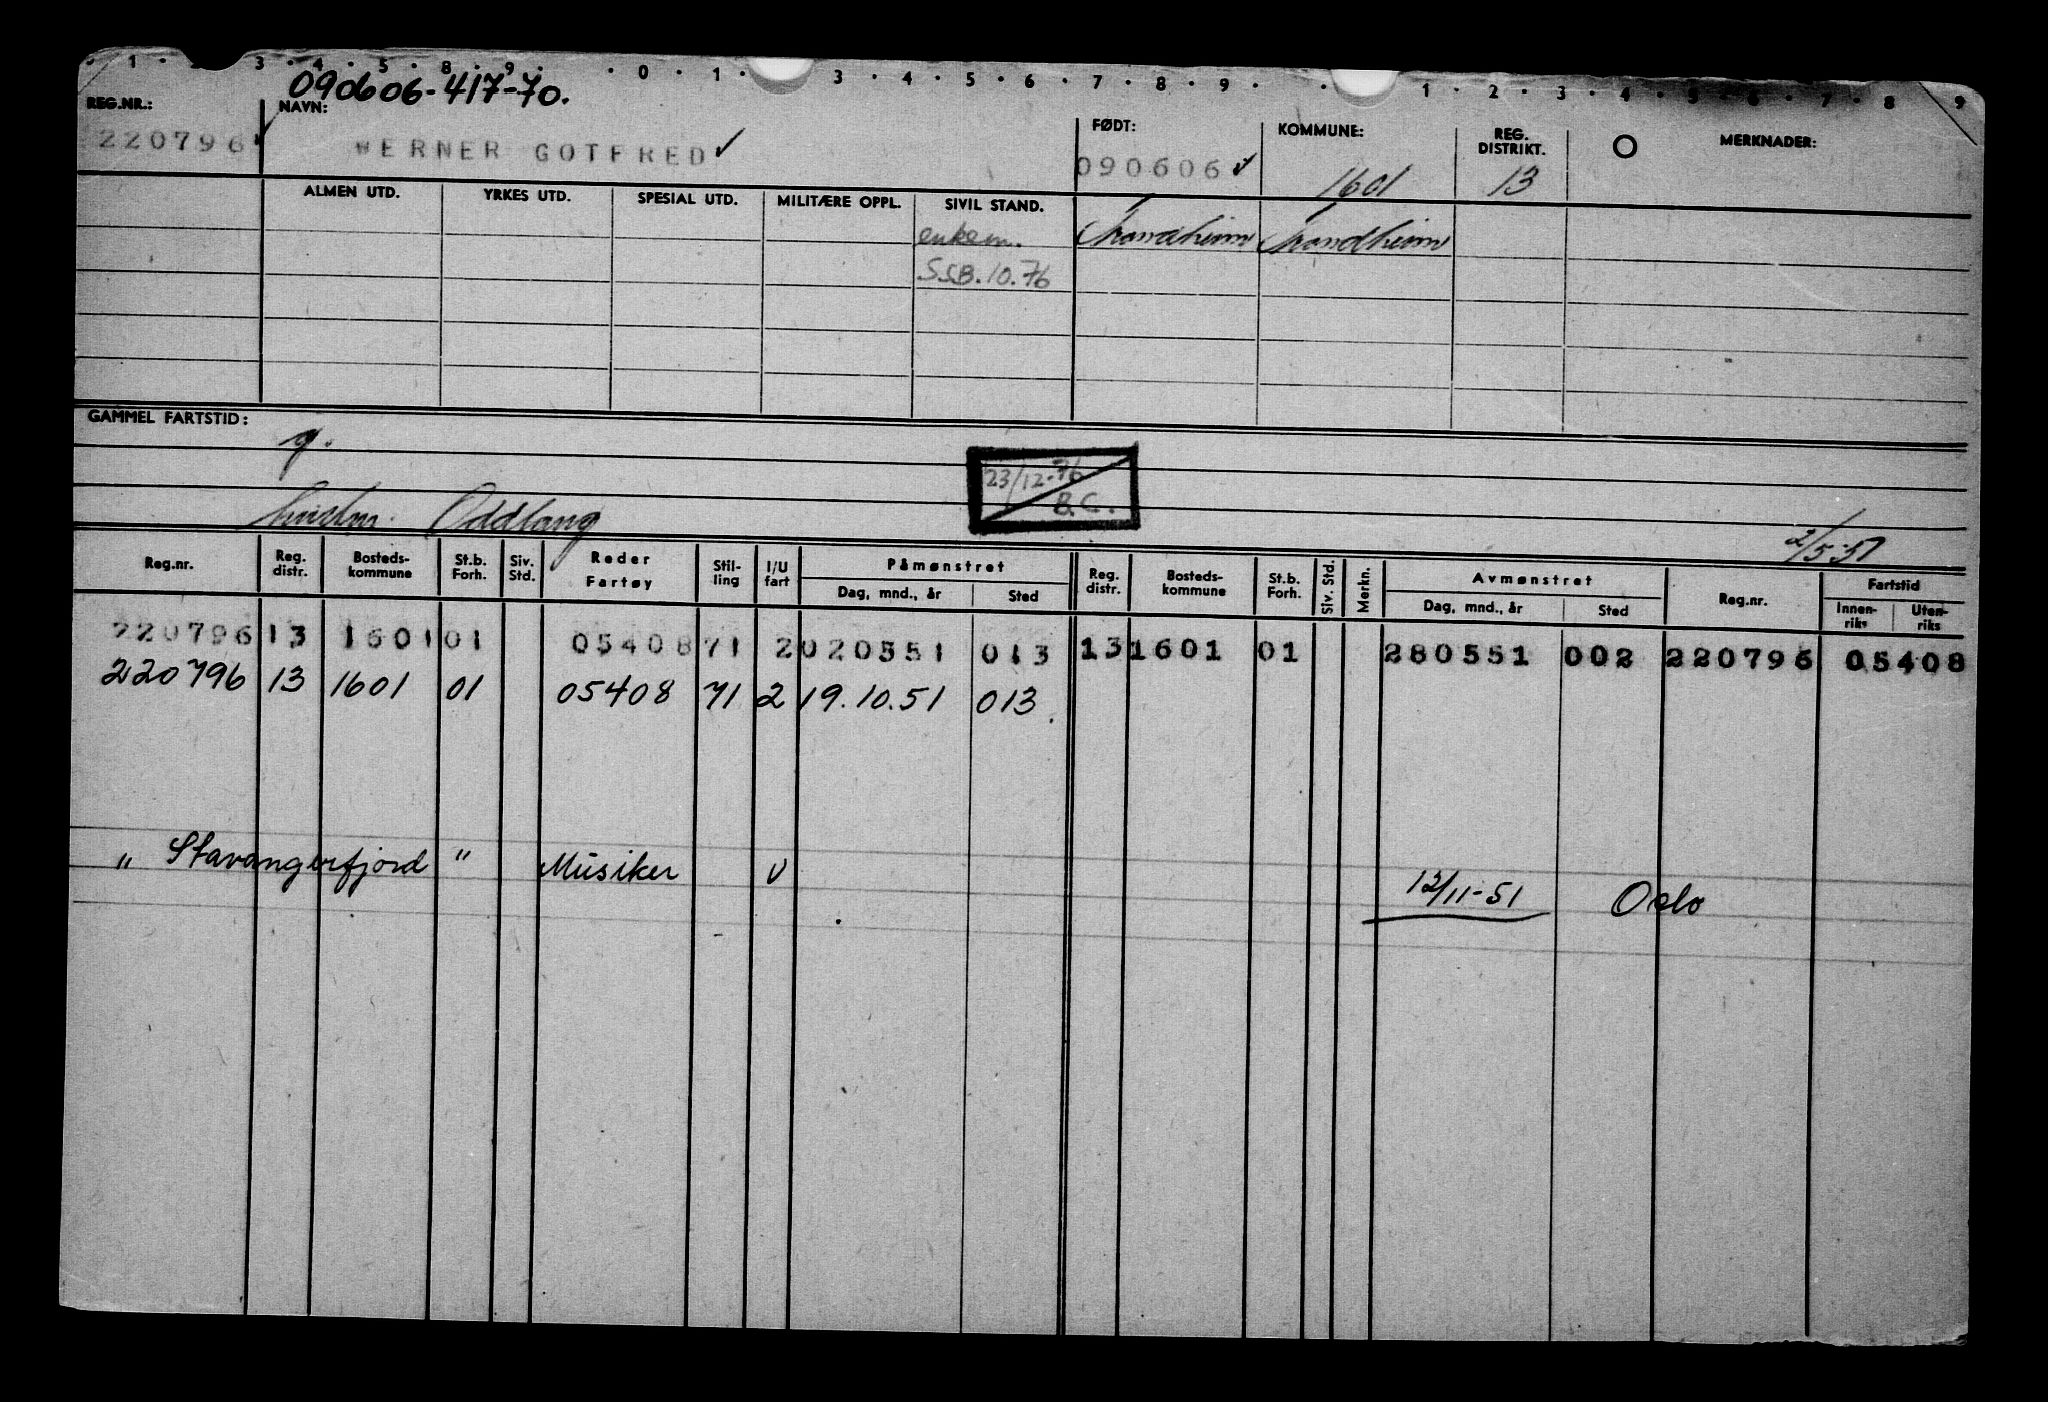 1 . 2 . 3 . 4 . 5 . 8 . 9 . . 0 . 1 . 3 . 4 . 5 . 6 . 7 . 8 . 9 . . 1 . 2 . 3 . 4 . 5 . 6 . 7 . 8 9
090606-417-70.
REG.NR.: NAVN: FØDT: KOMMUNE: REG. DISTRIKT. O MERKNADER:
220796 ✓ WERNER GOTFRED ✓ 090606 ✓ 1601 13
ALMEN UTD. YRKES UTD. SPESIAL UTD. MILITÆRE OPPL. SIVIL STAND.
enkem. Trondheim Trondheim
S.S.B.10.76
GAMMEL FARTSTID:
g.
23/12-76
B.C.
Oddlaug 2/5-51
Reg.nr. Reg. distr. Bosteds-kommune St.b. Forh. Siv. Std. Reder Fartøy Stil-ling I/U fart Påmønstret Dag, mnd., år Sted Reg. distr. Bosteds-kommune St.b. Forh. Siv. Std. Merkn. Avmønstret Dag, mnd., år Sted Reg.nr. Fartstid Innen-riks Uten-riks
220796 13 1601 01 05408 71 2 020551 013 13 1601 01 280551 002 220796 05408
220796 13 1601 01 05408 71 2 19.10.51 013
" Stavangerfjord " Musiker U 12/11-51 Oslo